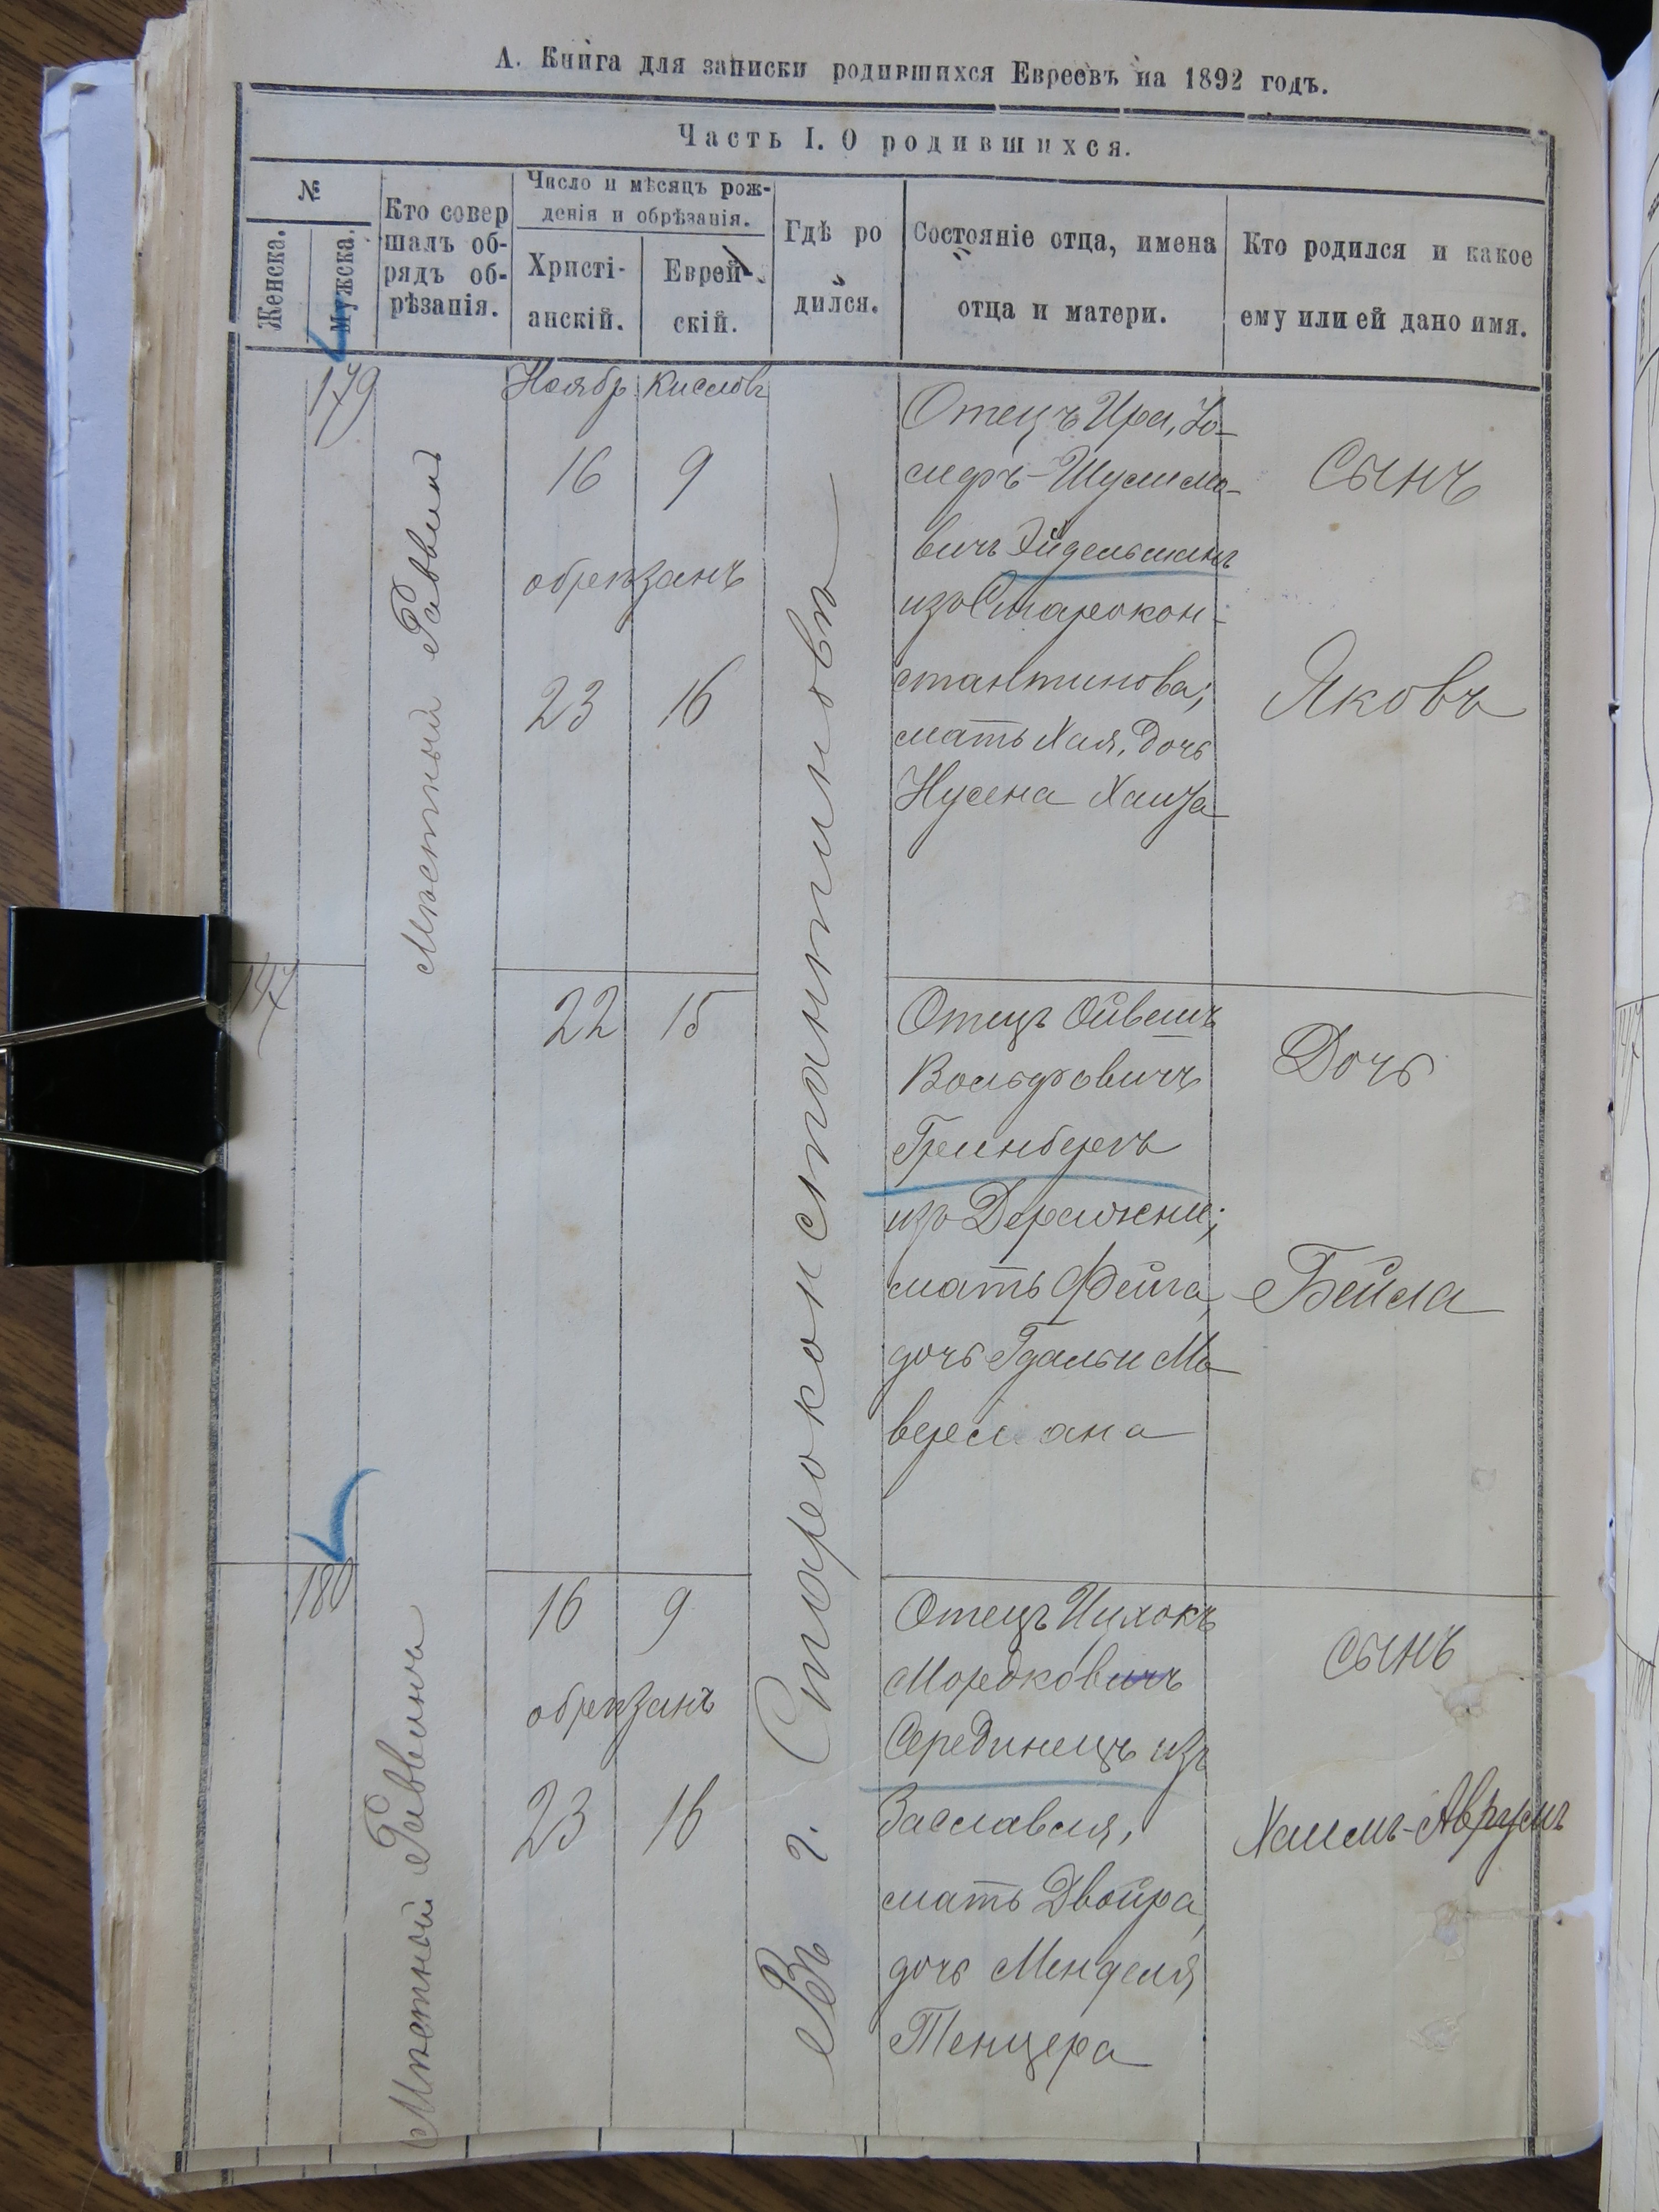 А. Книга для записки родившихся Евреевъ на 1892 годъ.
Часть I. О родившихся.
№
Женска.
Мужска.
Кто совер
шалъ об-
рядъ об-
рѣзанія.
Число и мѣсяцъ рож-
денія и обрѣзанія.
Христі-
анскій.
Еврей-
скій.
Гдѣ ро
дился.
Состояніе отца, имена
отца и матери.
Кто родился и какое
ему или ей дано имя.
179
Мѣстный Раввинъ
Ноябр. Кислевъ
16 9
обрѣзанъ
23 16
Въ г. Староконстантиновѣ
Отецъ Ира, Іо-
сифъ-Шулимо-
вичъ Эйдельманъ
изъ Старокон-
стантинова;
мать Хая, дочь
Нусена Хаиза
Сынъ
Яковъ
147
22 15
Отецъ Ойвешъ
Вольфовичъ
Гринбергъ
изъ Деражни;
мать Фейга,
дочь Гдальи Ма-
вермана
Дочь
Бейла
180
Мѣстный Раввинъ
16 9
обрѣзанъ
23 16
Отецъ Ицхокъ
Мордковичъ
Серединецъ изъ
Заславля,
мать Двойра,
дочь Менделя
Тенцера
Сынъ
Хаимъ-Аврумъ